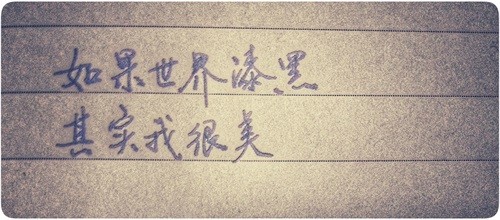 如果世界漆黑
其实我很美